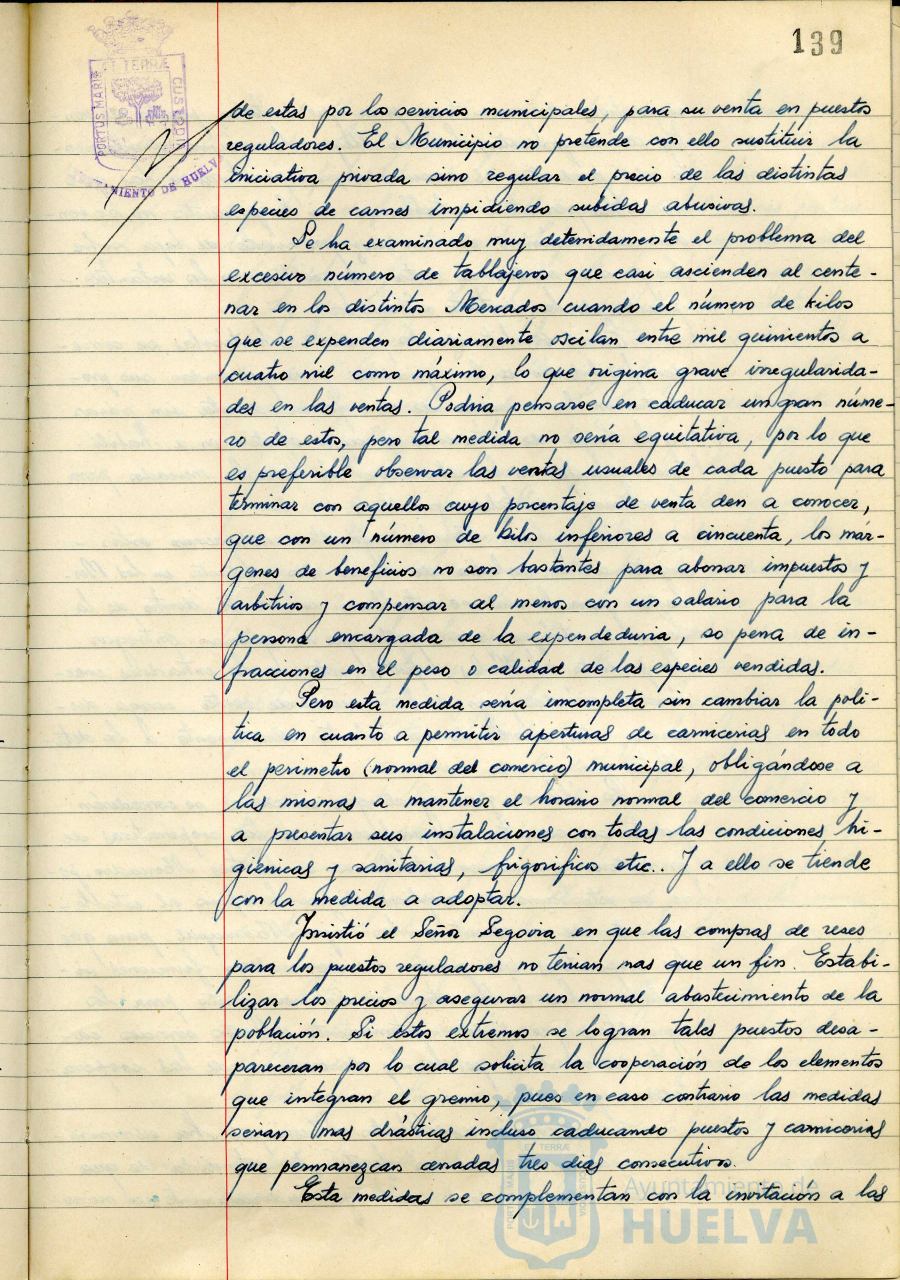 139
PORTUS MARIS ET TERRÆ CUSTODIA
AYUNTAMIENTO DE HUELVA
de estas por los servicios municipales, para su venta en puestos
reguladores. El Municipio no pretende con ello sustituir la
iniciativa privada sino regular el precio de las distintas
especies de carnes impidiendo subidas abusivas.
Se ha examinado muy detenidamente el problema del
excesivo número de tablajeros que casi ascienden al cente-
nar en los distintos Mercados cuando el número de kilos
que se expenden diariamente oscilan entre mil quinientos a
cuatro mil como máximo, lo que origina grave irregularida-
des en las ventas. Podria pensarse en caducar un gran núme-
ro de estos, pero tal medida no seria equitativa, por lo que
es preferible observar las ventas usuales de cada puesto para
terminar con aquellos cuyo porcentaje de venta den a conocer,
que con un número de kilos inferiores a cincuenta, los már-
genes de beneficios no son bastantes para abonar impuestos y
arbitrios y compensar al menos con un salario para la
persona encargada de la expendeduria, so pena de in-
fracciones en el peso o calidad de las especies vendidas.
Pero esta medida seria imcompleta sin cambiar la poli-
tica en cuanto a permitir aperturas de carnicerias en todo
el perimetro (normal del comercio) municipal, obligándose a
las mismas a mantener el horario normal del comercio y
a presentar sus instalaciones con todas las condiciones hi-
giénicas y sanitarias, frigorificos etc.. Y a ello se tiende
con la medida a adoptar.
Insistió el Señor Segovia en que las compras de reses
para los puestos reguladores no tenian mas que un fin. Estabi-
lizar los precios y asegurar un normal abastecimiento de la
población. Si estos extremos se logran tales puestos desa-
pareceran por lo cual solicita la cooperación de los elementos
que integran el gremio, pues en caso contrario las medidas
serian mas drásticas incluso caducando puestos y carnicerias
que permanezcan cerradas tres dias consecutivos.
Esta medidas se complementan con la invitación a las
Ayuntamiento de
HUELVA